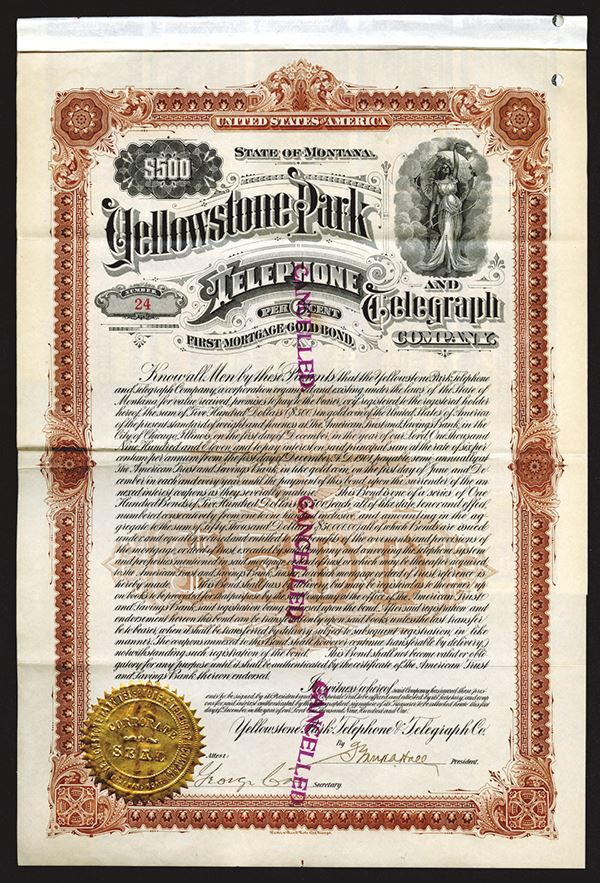 UNITED STATES OF AMERICA
STATE OF MONTANA.
$500
Yellowstone Park
TELEPHONE
AND
Telegraph
COMPANY.
NUMBER
24
PER CENT
FIRST MORTGAGE GOLD BOND.
Know all Men by these Presents that the Yellowstone Park Telephone
and Telegraph Company, a corporation organized and existing under the laws of the State of
Montana for value received, promises to pay to the bearer, or if registered to the registered holder
hereof, the sum of Five Hundred Dollars ($500) in gold coin of the United States of America
of the present standard of weight and fineness at the American Trust and Savings Bank, in the
City of Chicago, Illinois, on the first day of December, in the year of our Lord One thousand
Nine Hundred and Eleven and to pay interest on said principal sum at the rate of six per
centum per annum from the first day of December A.D. 1901 payable semi annually at
The American Trust and Savings Bank, in like gold coin, on the first day of June and De-
cember in each and every year until the payment of this bond upon the surrender of the an-
nexed interest coupons as they severally mature. This Bond is one of a series of One
Hundred Bonds of Five Hundred Dollars ($500) each, all of the same tenor and effect
numbered consecutively from one to one hundred inclusive and amounting in the ag-
gregate to the sum of Fifty Thousand Dollars ($50,000.00) all of which Bonds are issued
under and equally secured and entitled to the benefits of the covenants and provisions of
the mortgage, or deed of trust executed by said Company and conveying the telephone system
and properties enumerated in said mortgage deed of trust, or which may be thereafter acquired
to the American Trust and Savings Bank, Trustee, to which mortgage or deed of trust reference is
hereby made. This Bond shall pass by delivery, but may be registered as to ownership
on books to be provided for that purpose by the said Company at the office of the American Trust
and Savings Bank, said registration being endorsed upon the bond. After said registration and
endorsement hereon this bond can be transferred only upon said books unless the last transfer
be to bearer, when it shall be transferred by delivery subject to subsequent registration in like
manner. The coupons annexed to this Bond shall however continue transferable by delivery
notwithstanding such registration of the bond. This Bond shall not become valid or obli-
gatory for any purpose until it shall be authenticated by the certificate of the American Trust
and Savings Bank thereon endorsed.
In witness whereof said Company has caused these pres-
ents to be signed by its President and its corporate seal to be affixed and attested by its Secretary and
Yellowstone Park Telephone & Telegraph Co.
By
President.
Attest:
George
Secretary.
CORPORATE
SEAL
CANCELLED.
CANCELLED.
CANCELLED.